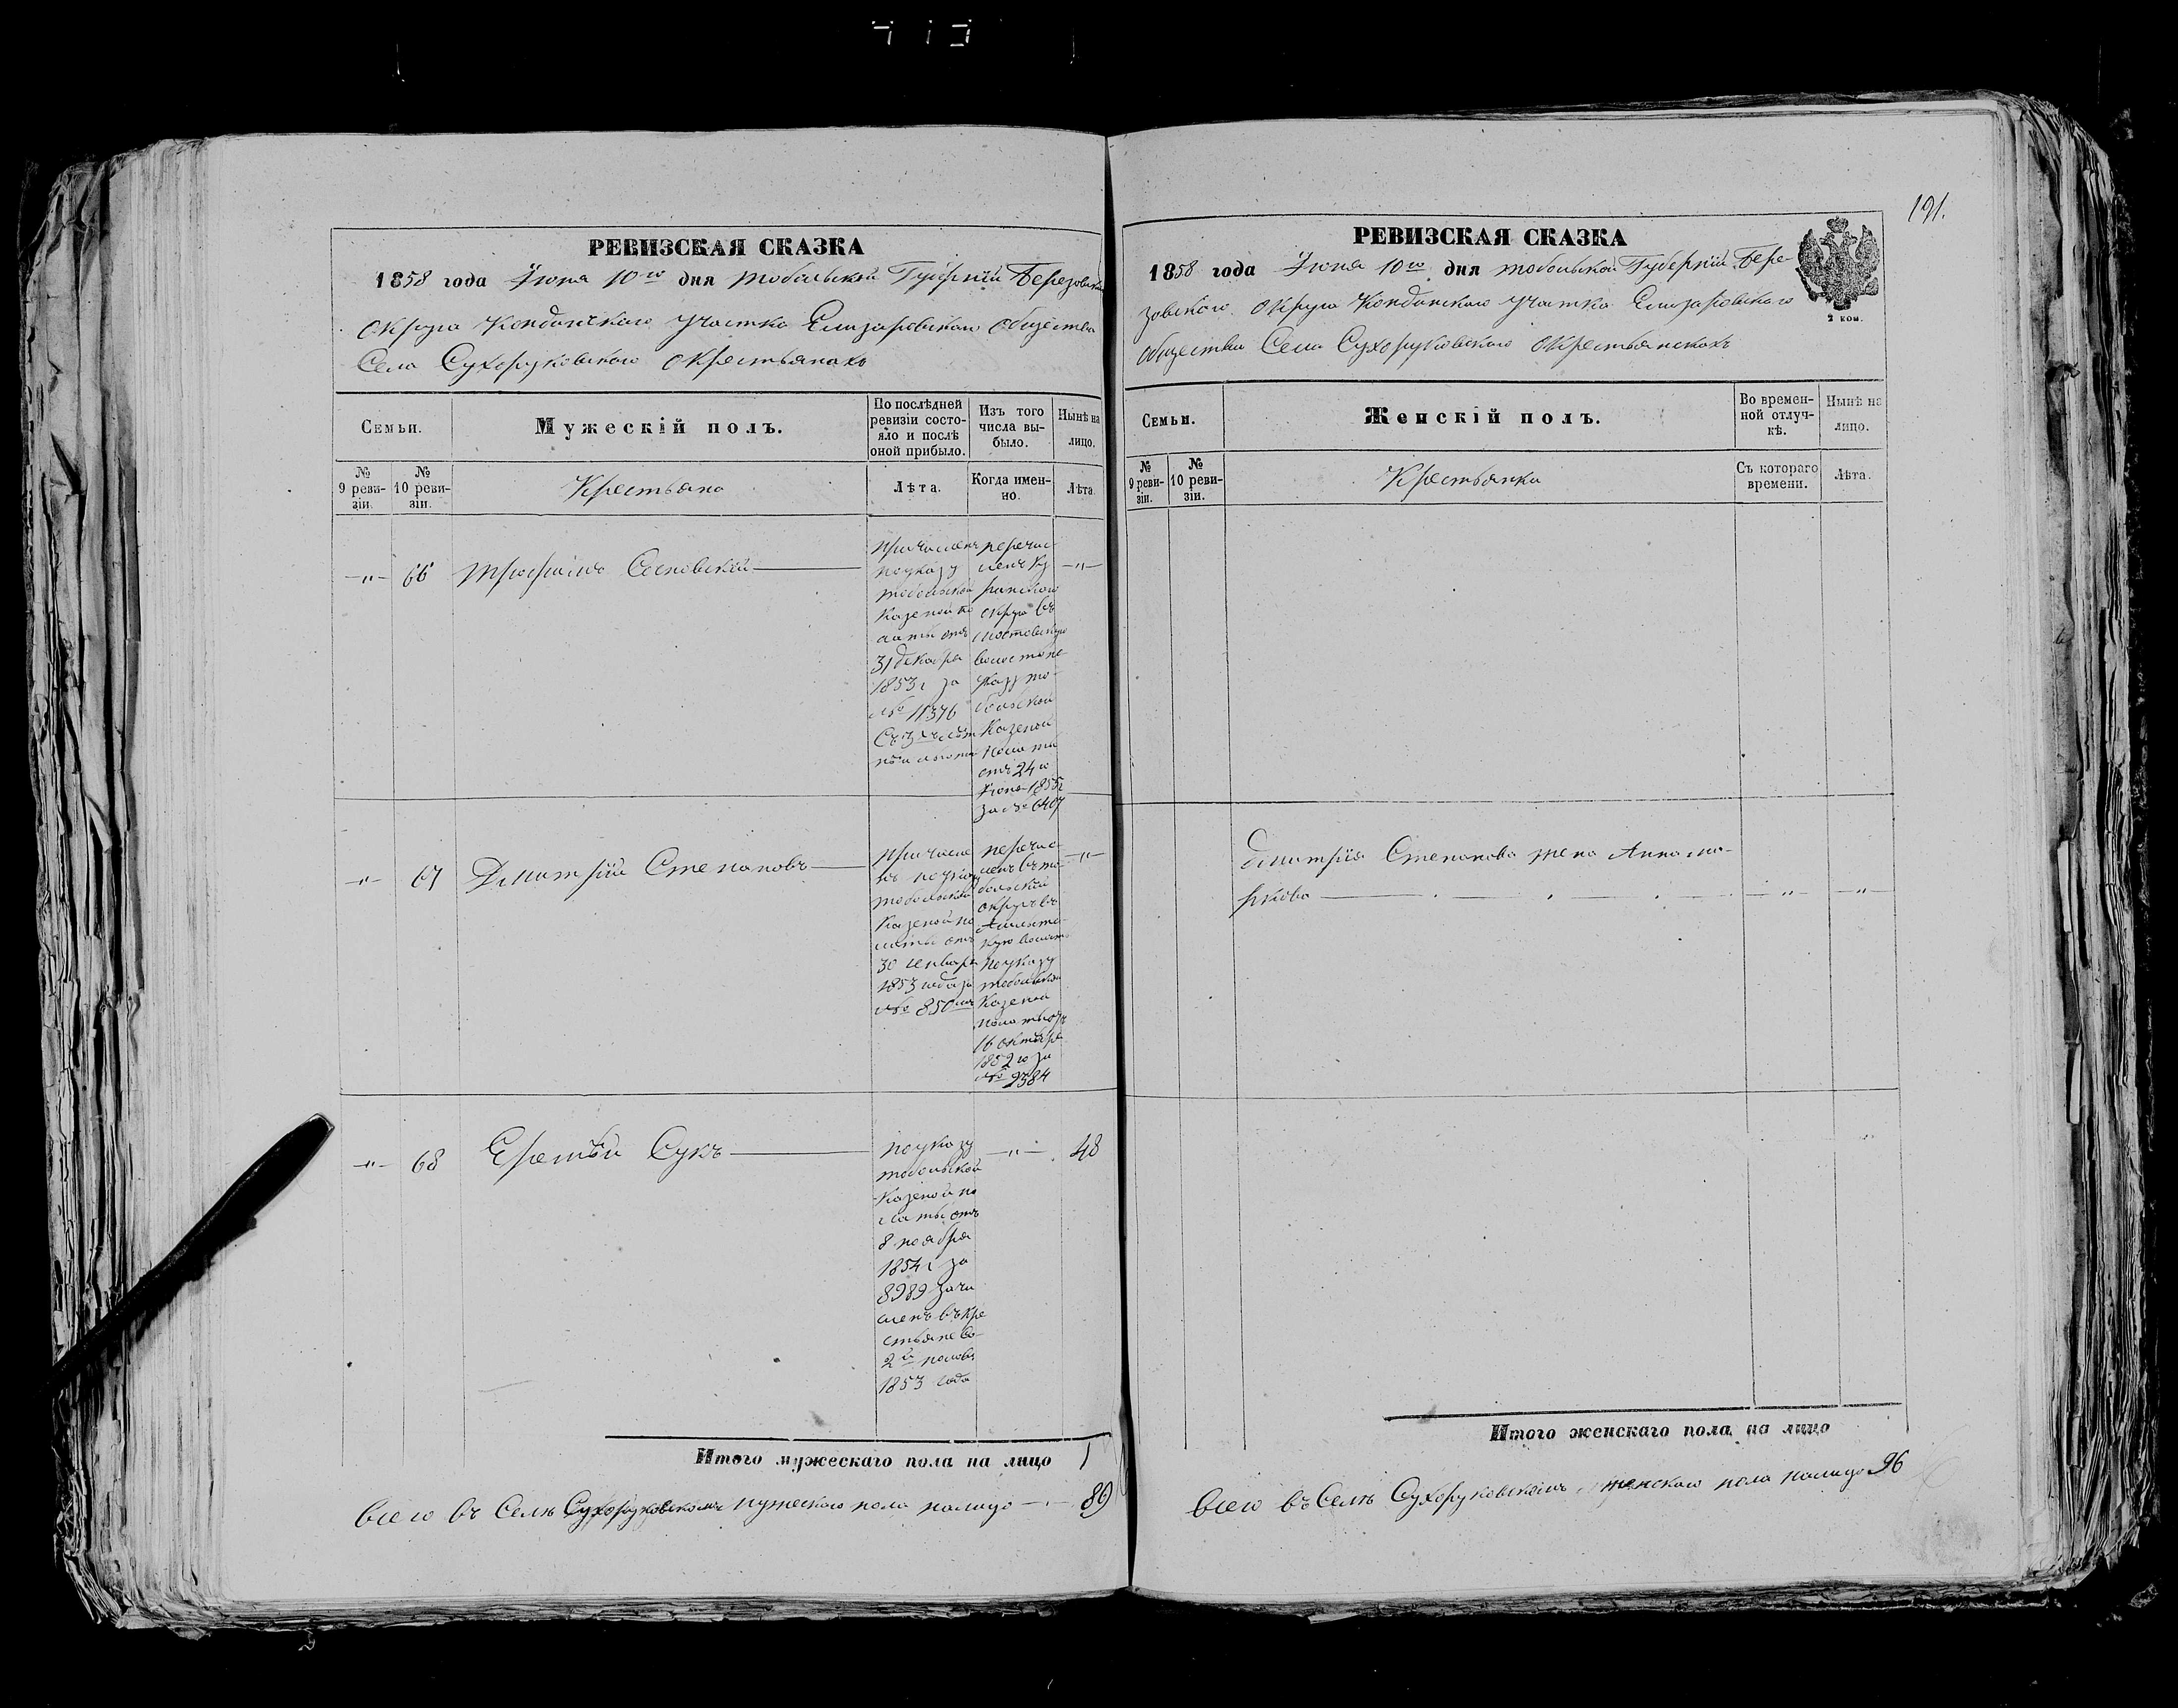 191.
РЕВИЗСКАЯ СКАЗКА
1858 года Июня 10го дня Тобольской Губерніи Березовскаго
округа Кондинскаго участка Елизаровскаго общества
Села Сухоруковскаго о Крестьянахъ
Семьи.
Мужескій полъ.
По послѣдней ревизіи состо-
яло и послѣ оной прибыло.
Изъ того числа вы-
было.
Нынѣ на лицо.
№ 9 реви-
зіи.
№ 10 реви-
зіи.
Крестьяне
Лѣта.
Когда имен-
но.
Лѣта
—"— 66 Трофимъ Сосновскій
Причисленъ
по указу
тобольской
Казеной па
латы отъ
31 декабря
1853 г за
№ 11376
перечис
ленъ Ку
ринскаго
округа въ
волость по
указу то-
больской
Казеной
палаты
отъ 24го
Июня 1855 г
за № 6407
—"—
—"— 67 Дмитрій Степановъ
Причисле
нъ по указу
тобольской
Казеной па
латы отъ
30 генваря
1853 года за
№ 850мъ
перечис-
ленъ въ то-
больскій
округъ въ
кую волость
по указу
тобольской
Казеной
палаты отъ
16 октября
за
№ 9384
—"—
—"— 68 Сукъ
по указу
тобольской
Казеной па
латы отъ
8 ноября
1854 г за
8989 зачи
сленъ въ кре
стьяне во
2й полов
1853 года
—"— 48
Итого мужескаго пола на лицо 1
Всего въ Селѣ Сухоруковскомъ мужескаго пола налицо — 89
РЕВИЗСКАЯ СКАЗКА
1858 года Июня 10го дня Тобольской Губерніи Бере-
зовскаго округа Кондинскаго участка Елизаровскаго
общества Села Сухоруковскаго о Крестьянскахъ
2 коп.
Семьи.
Женскій полъ.
Во времен-
ной отлуч-
кѣ.
Нынѣ на лицо.
№ 9 реви-
зіи.
№ 10 реви-
зіи.
Крестьянки
Съ котораго времени.
Лѣта.
Дмитрія Степанова жена Анна Ма-
ркова —"— —"—
Итого женскаго пола на лицо
Всего въ Селѣ Сухоруковскомъ женскаго пола налицо 96